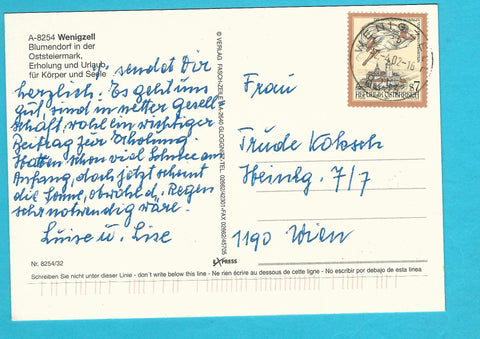 A-8254 Wenigzell
Blumendorf in der
Oststeiermark,
Erholung und Urlaub
für Körper und Seele
sendet Dir
herzlich. Es geht uns
gut, sind in netter Gesell
schaft, wohl ein wichtiger
Beitrag zur Erholung
Hatten schon viel Schnee am
Anfang, doch jetzt scheint
die Sonne, obwohl d. Regen
sehr notwendig wäre.
Luise u. Lise
Nr. 8254/32
© VERLAG A-2640 GLOGGNITZ
EXPRESS
Frau
Trude
7/7
1190 Wien
WENIGZELL
REPUBLIK ÖSTERREICH
S7
Schreiben Sie nicht unter dieser Linie - don't write below this line - Ne rien écrire au dessous de cette ligne - No escribir por debajo de esta linea